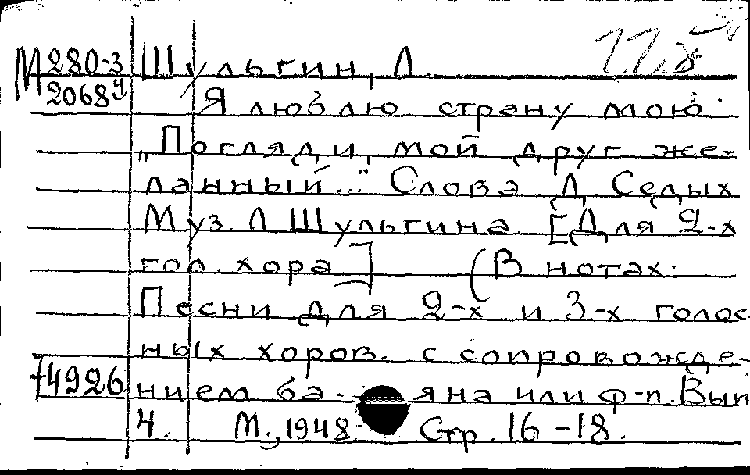 М 280-3 Шульгин, Л.
2068 Я люблю страну мою.
„Погляди, мой друг же-
ланный..." Слова Д. Седых
Муз. Л. Шульгина [Для 2-х
гол. хора] (В нотах:
Песни для 2-х и 3-х голос
ных хоров. с сопровожде-
+4926 нием баяна или ф-п. Вып
4. М., 1948. Стр. 16-18.